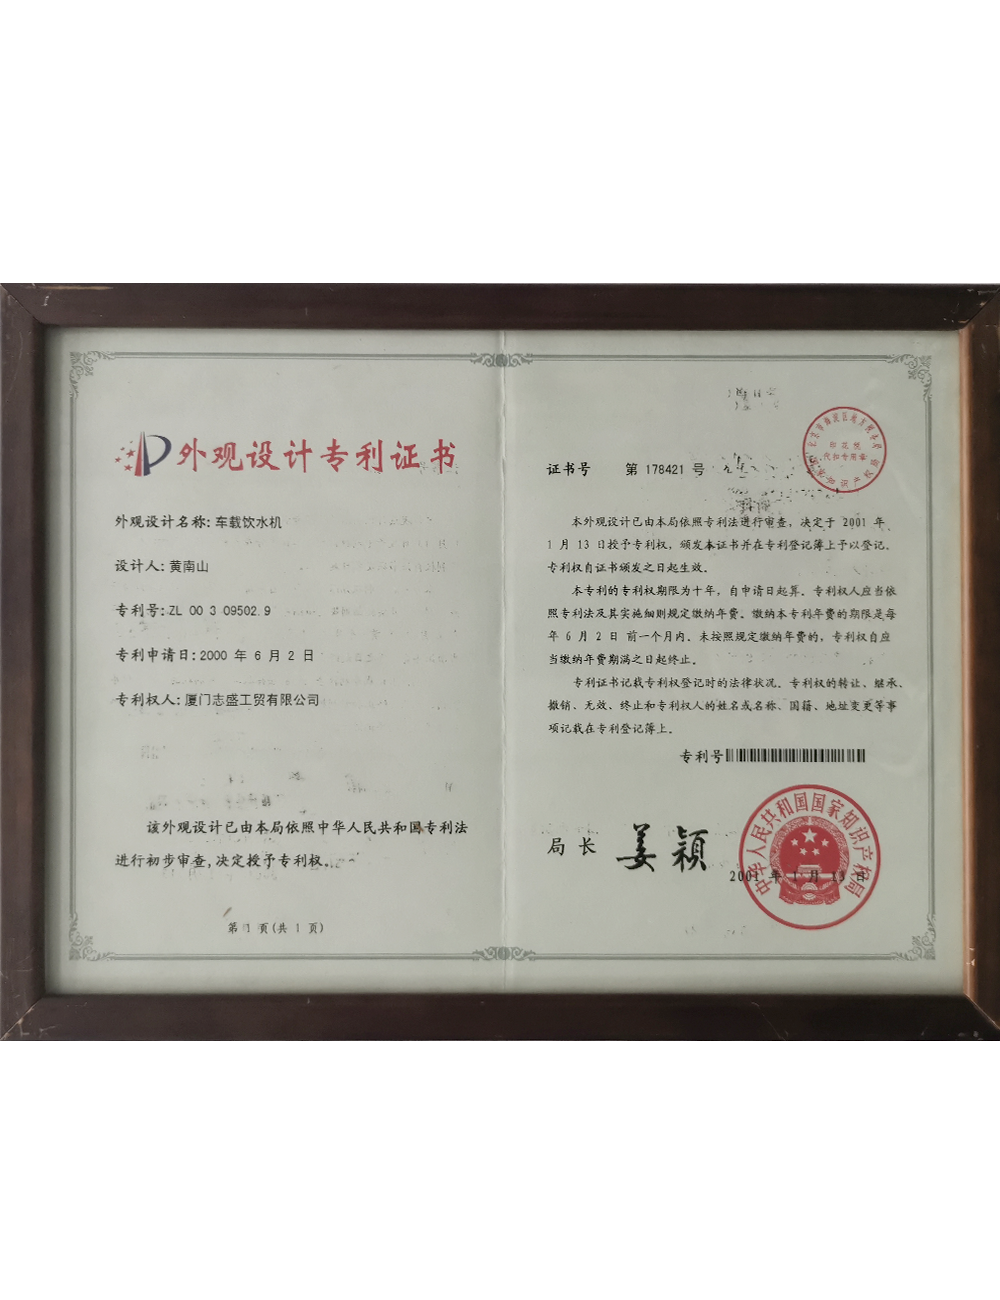 外观设计专利证书
外观设计名称:车载饮水机
设计人:黄南山
专利号:ZL 00 3 09502.9
专利申请日:2000 年 6 月 2 日
专利权人:厦门志盛工贸有限公司
该外观设计已由本局依照中华人民共和国专利法
进行初步审查,决定授予专利权。
第 1 页(共 1 页)
证书号 第 178421 号
印花税
代扣专用章
本外观设计已由本局依照专利法进行审查，决定于 2001 年
1 月 13 日授予专利权，颁发本证书并在专利登记簿上予以登记。
专利权自证书颁发之日起生效。
本专利的专利权期限为十年，自申请日起算。专利权人应当依
照专利法及其实施细则规定缴纳年费。缴纳本专利年费的期限是每
年 6 月 2 日 前一个月内。未按照规定缴纳年费的，专利权自应
当缴纳年费期满之日起终止。
专利证书记载专利权登记时的法律状况。专利权的转让、继承、
撤销、无效、终止和专利权人的姓名或名称、国籍、地址变更等事
项记载在专利登记簿上。
专利号
局长 姜颖
中华人民共和国国家知识产权局
2001 年 1 月 13 日